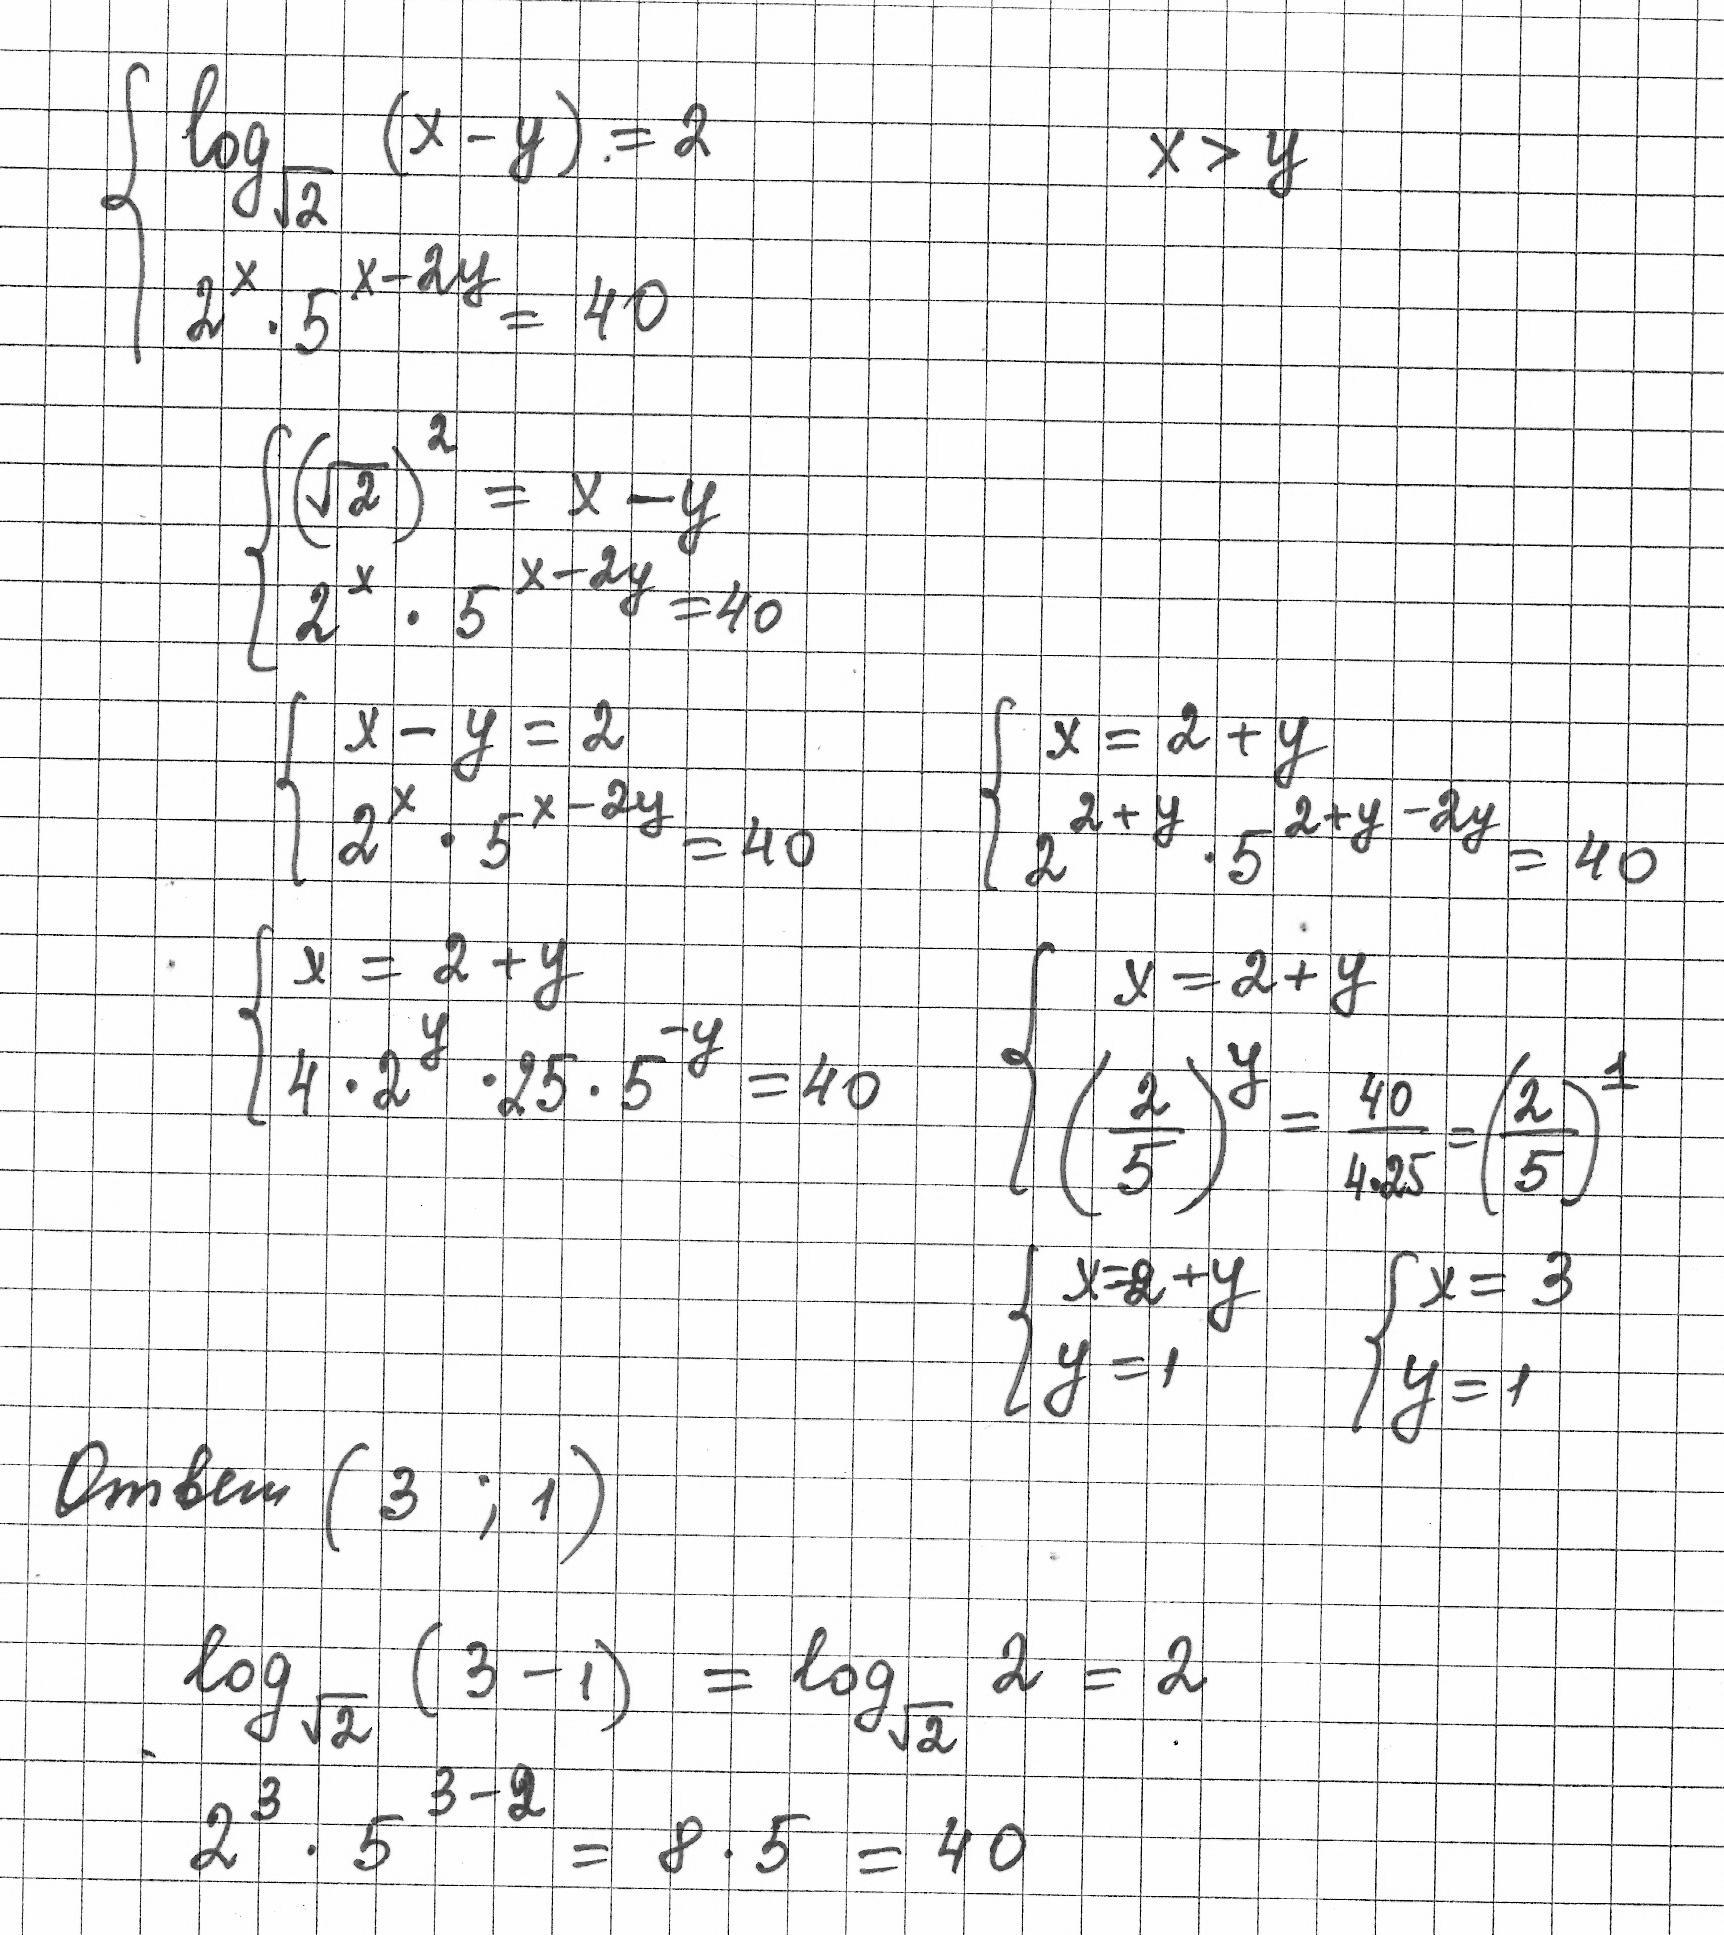 log_√2 (x − y) = 2    x > y
2^x · 5^(x−2y) = 40
(√2)^2 = x − y
2^x · 5^(x−2y) = 40
x − y = 2    x = 2 + y
2^x · 5^(x−2y) = 40    2^(2+y) · 5^(2+y−2y) = 40
x = 2 + y    x = 2 + y
4 · 2^y · 25 · 5^(−y) = 40    (2/5)^y = 40/(4·25) = (2/5)^1
x = 2 + y    x = 3
y = 1    y = 1
Ответ (3 ; 1)
log_√2 (3 − 1) = log_√2 2 = 2
2^3 · 5^(3−2) = 8 · 5 = 40